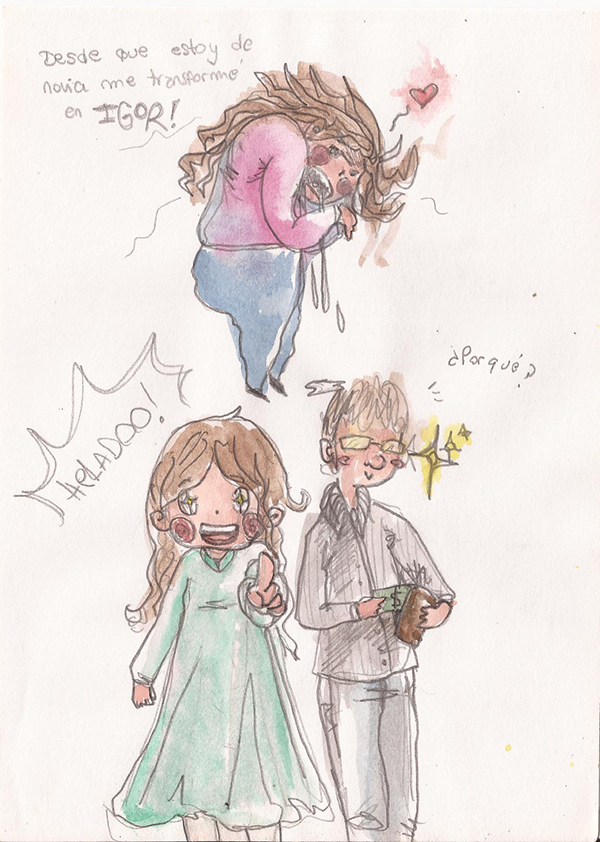 Desde que estoy de
novia me transformé
en IGOR!
¿Porqué?
HELADOO!